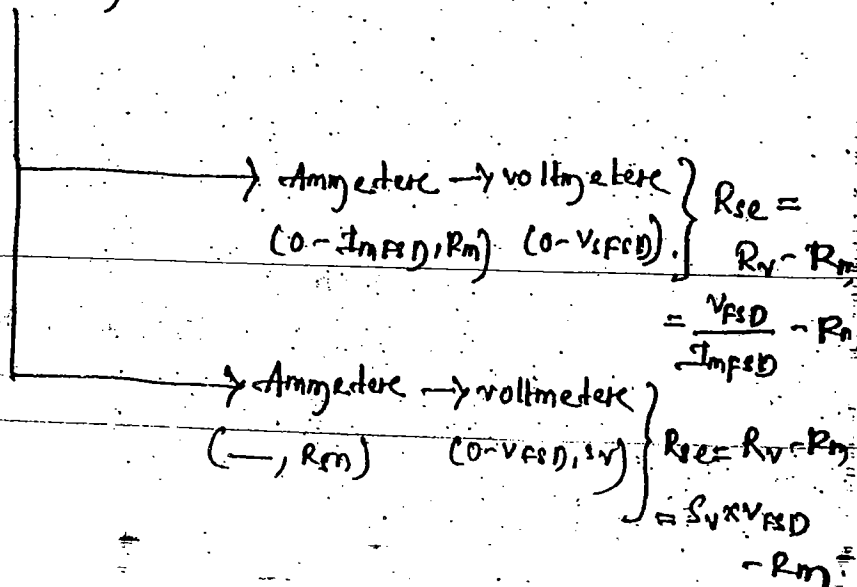 Ammetere → voltmetere } Rse =
(0 - ImFSD, Rm) (0 - VSFSD). Rv - Rm
= VFSD / ImFSD - Rm
Ammetere → voltmetere
(—, Rm) (0 - VFSD, Sv) } Rse = Rv - Rm
= Sv × VFSD
- Rm.